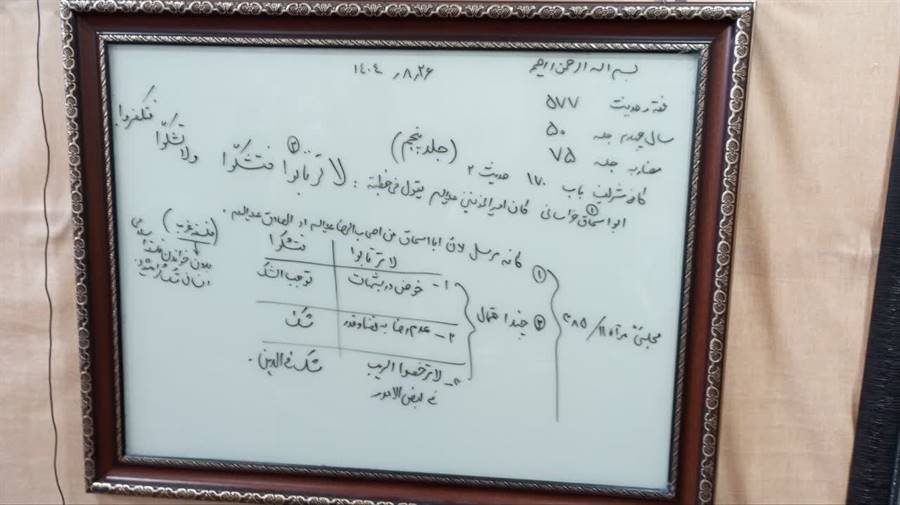 بسم الله الرحمن الرحیم
۱۴۰۴ ٫۸٫ ۲۶
فقه و حدیث ۵۷۷
سال چهاردهم جلسه ۵۰
جلسه ۷۵
(جلد پنجم)
کافی شریف باب ۱۷۰ حدیث ۲
ابو اسحاق خراسانی ① کان امیرالمؤمنین علیه السلام یقول فی خطبته : لا ترتابوا ② فتشکّوا
ولا تشکّوا
فتکفروا
مجلسی ره مرآة ۱۱/ ۱۸۵
① کانه مرسل لان ابا اسحاق من اصحاب الرضا علیه السلام او الصادق علیه السلام .
② چند احتمال
لا ترتابوا
فتشکوا
۱- خوض در شبهات
توجب الشک
۲- عدم رضا به قضا و قدر
شک
۳- لا ترخصوا الریب
فی بعض الامور
شک فی الدین .
(فلسفه غرب)
بدون خواندن فلسفه